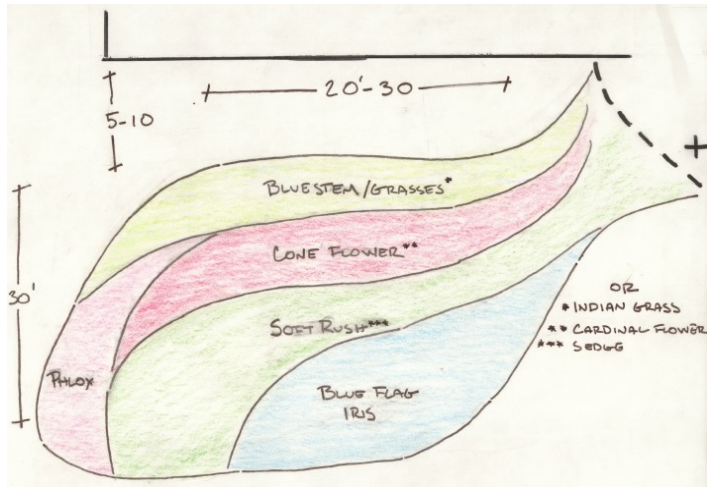 20'-30
5-10
BLUESTEM/GRASSES*
30'
CONE FLOWER**
SOFT RUSH***
PHLOX
BLUE FLAG
IRIS
OR
* INDIAN GRASS
** CARDINAL FLOWER
*** SEDGE
+